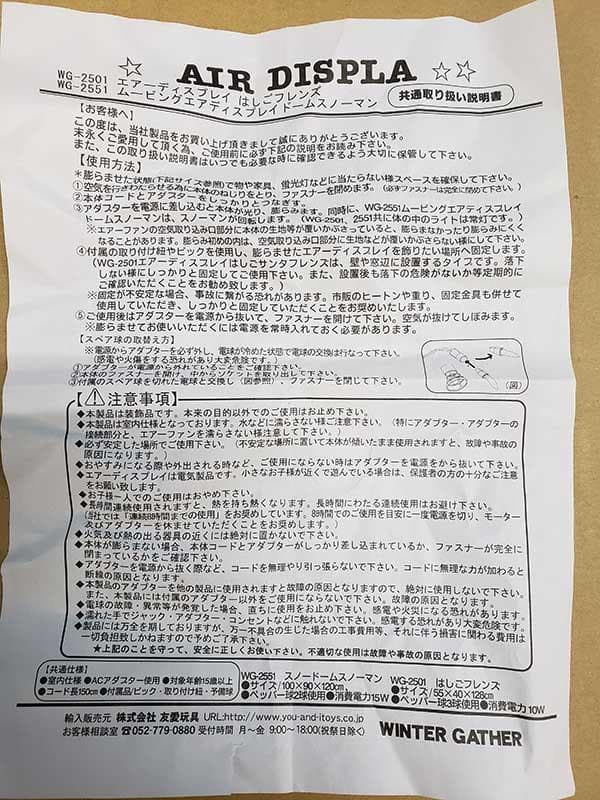 ☆ AIR DISPLA ☆☆
WG-2501 エアーディスプレイ はしごフレンズ
WG-2551 ムービングエアディスプレイドームスノーマン
共通取り扱い説明書
【お客様へ】
この度は、当社製品をお買い上げ頂きまして誠にありがとうございます。
末永くご愛用して頂く為、ご使用前に必ず下記の説明をお読み下さい。
また、この取り扱い説明書はいつでも必要な時に確認できるよう大切に保管して下さい。
【使用方法】
*膨らませた状態(下記サイズ参照)で物や家具、蛍光灯などに当たらない様スペースを確保して下さい。
①空気を行きわたらせる為に本体のねじりをとり、ファスナーを閉めます。(必ずファスナーは完全に閉めて下さい。)
②本体コードとアダプターをしっかりとつなぎます。
③アダプターを電源に差し込むと本体が光り、膨らみます。同時に、WG-2551ムービングエアディスプレイ
ドームスノーマンは、スノーマンが回転します。(WG-2501、2551共に体の中のライトは常灯です。)
※エアーファンの空気取り込み口部分に本体の生地等が覆いかぶさっていると、膨らまなかったり膨らみにくく
なることがあります。膨らみ初めの内は、空気取り込み口部分に生地などが覆いかぶさらない様にして下さい。
④付属の取り付け紐やピックを使用し、膨らませたエアーディスプレイを飾りたい場所へ固定します。
(WG-2501エアーディスプレイはしごサンタフレンズは、壁や窓辺に設置するタイプです。落下
しない様にしっかりと固定してご使用下さい。また、設置後も落下の危険がないか等定期的に
ご確認いただくことをお勧め致します。)
※固定が不安定な場合、事故に繋がる恐れがあります。市販のヒートンや重り、固定金具も併せて
使用していただき、しっかりと固定していただくことをお奨めいたします。
⑤ご使用後はアダプターを電源から抜いて、ファスナーを開けて下さい。空気が抜けてしぼみます。
※膨らませてお使いいただくには電源を常時入れておく必要があります。
【スペア球の取替え方】
※電源からアダプターを必ず外し、電球が冷めた状態で電球の交換は行なって下さい。
(感電や火傷をする恐れがあり大変危険です。)
①アダプターが電源から外れていることをご確認下さい。
②本体のファスナーを開け、中からソケットを取り出して下さい。
③付属のスペア球を切れた電球と交換し(図参照)、ファスナーを閉じて下さい。
(図)
【⚠注意事項】
◆本製品は装飾品です。本来の目的以外でのご使用はお止め下さい。
◆本製品は室内仕様となっております。水などに濡らさない様ご注意下さい。(特にアダプター・アダプターの
接続部分と、エアーファンを濡らさない様注意して下さい。)
◆必ず安定した場所でご使用下さい。(不安定な場所に置いて本体が傾いたまま使用されますと、故障や事故の
原因になります。)
◆おやすみになる際や外出される時など、ご使用にならない時はアダプターを電源をから抜いて下さい。
◆エアーディスプレイは電気製品です。小さなお子様が近くで遊んでいる場合は、保護者の方の十分なご注意
をお願い致します。
◆お子様一人でのご使用はおやめ下さい。
◆長時間連続使用されますと、熱を持ち熱くなります。長時間にわたる連続使用はお避け下さい。
(当社では「連続8時間までの使用」をお奨めしています。8時間でのご使用を目安に一度電源を切り、モーター
及びアダプターを休ませていただくことをお奨めします。)
◆火気及び熱の出る器具の近くには絶対に置かないで下さい。
◆本体が膨らまない場合、本体コードとアダプターがしっかり差し込まれているか、ファスナーが完全に
閉まっているかをご確認下さい。
◆アダプターを電源から抜く際など、コードを無理やり引っ張らないで下さい。コードに無理な力が加わると
断線の原因となります。
◆本製品のアダプターを他の製品に使用されますと故障の原因となりますので、絶対に使用しないで下さい。
また、本製品には付属のアダプター以外をご使用にならないで下さい。故障の原因となります。
◆電球の故障・異常等が発覚した場合、直ちに使用をお止め下さい。感電や火災になる恐れがあります。
◆濡れた手でジャック・アダプター・コンセントなどに触れないで下さい。感電する恐れがあり大変危険です。
◆製品には万全を期しておりますが、万一不具合の生じた場合の工事費用等、それに伴う損害に関わる費用は
一切負担致しかねますので予めご了承下さい。
★上記のことを守って、安全に正しくお使い下さい。不適切な使用は故障や事故の原因となります。
【共通仕様】
●室内仕様 ●ACアダプター使用 ●対象年齢15歳以上
●コード長150cm ●付属品/ピック・取り付け紐・予備球
WG-2551 スノードームスノーマン
●サイズ/100×90×120cm
●ペッパー球2球使用●消費電力15W
WG-2501 はしごフレンズ
●サイズ/55×40×128cm
●ペッパー球3球使用●消費電力10W
輸入販売元 株式会社 友愛玩具 URL:http://www.you-and-itoys.co.jp
お客様相談室 ☎052-779-0880 受付時間 月～金 9:00～18:00(祝祭日除く)
WINTER GATHER